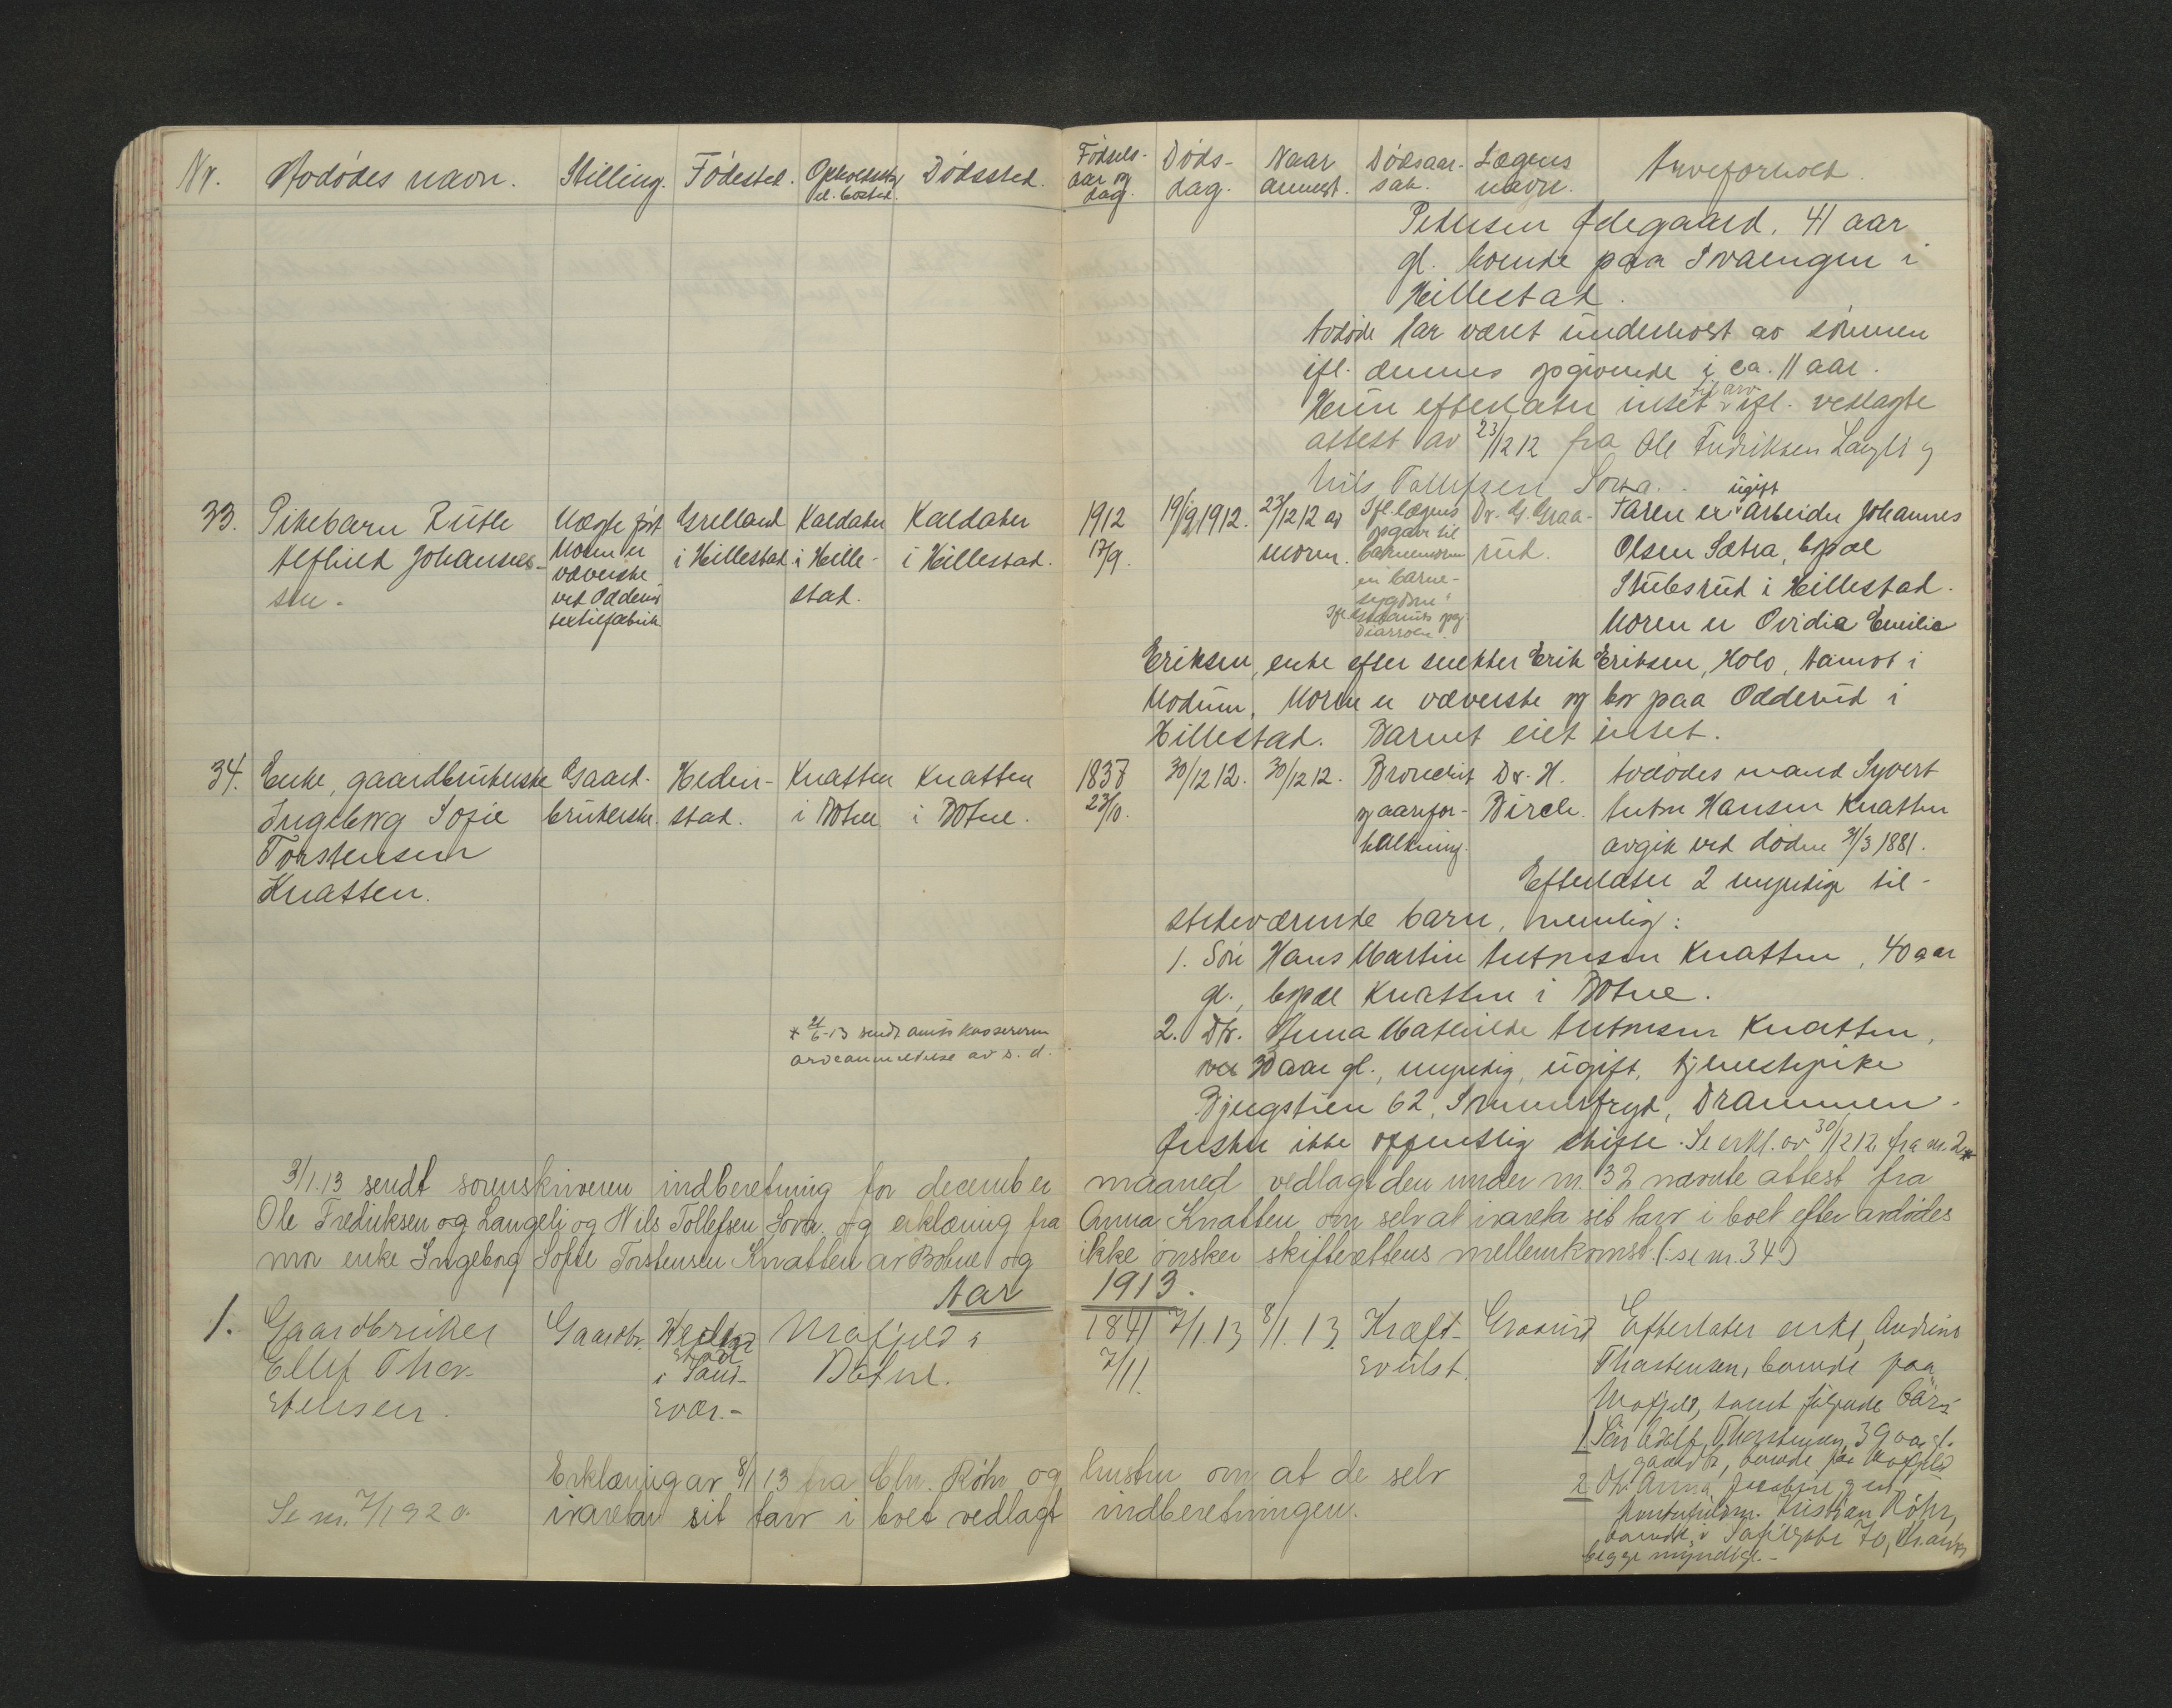 Nr. Avdødes navn. Stilling. Fødested. Opholdssted el. bosted. Dødssted. Fødsels-aar og dag. Døds-dag. Naar anmeldt. Dødsaar-sak. Lægens navn. Arveforhold.
Pedersen Ødegaard, 41 aar
gl. boende paa Svaengen i
Hillestad.
Avdøde har været underholdt av sønnen
ifl. dennes opgivende i ca. 11 aar.
Hun efterlater intet til arv ifl. vedlagte
attest av 23/12 12 fra Ole Fredriksen Langeli og
Nils Tollefsen Sova.
33. Pikebarn Ruth
Alfhild Johannes-
sen.
Uægte født
Moren er
væverske
ved Odderud
textilfabrik
Grelland
i Hillestad
Kaldaker
i Hille-
stad.
Kaldaker
i Hillestad.
1912
17/9.
19/9 1912.
23/12 12 av
moren.
Ifl. lægens
opgave til
barnemoren
en barne-
sygdom;
Diarroe.
Dr. G. Graa-
rud.
Faren er ugift arbeider Johannes
Olsen Sætra, bopæl
Stubsrud i Hillestad.
Moren er Ovidia Emilie
Eriksen, enke efter snekker Erik Eriksen, Holo, Aamot i
Modum. Moren er væverske og bor paa Odderud i
Hillestad. Barnet eiet intet.
34. Enke, gaardbrukerske
Ingeborg Sofie
Torstensen
Knatten.
Gaard-
brukerske.
Heden-
stad.
Knatten
i Botne
Knatten
i Botne.
1837
23/10.
30/12 12.
30/12 12.
Bronchit
og aarefor-
kalkning.
Dr. H.
Birch.
Avdødes mand Syvert
Anton Hansen Knatten
avgik ved døden 31/3 1881.
Efterlater 2 myndige til-
stedeværende barn, nemlig:
1. Søn Hans Martin Antonsen Knatten, 40 aar
gl., bopæl Knatten i Botne.
2. Dtr. Anna Mathilde Antonsen Knatten,
over 30 aar gl., myndig, ugift, tjenestepike
Bjergstien 62, Sommerfryd, Drammen.
Ønsker ikke offentlig skifte. Se erkl. av 30/12 12 fra nr. 2 *
* 2/6-13 sendt amtskassereren
arveanmeldelse av s. d.
3/1.13 sendt sorenskriveren indberetning for december maaned vedlagt den under nr. 32 nævnte attest fra
Ole Fredriksen og Langeli og Nils Tollefsen Sova, og erklæring fra Anna Knatten om selv at ivareta sit tarv i boet efter avdødes
mor enke Ingeborg Sofie Torstensen Knatten av Botne og ikke ønsker skifterettens mellemkomst. (: se nr. 34)
Aar 1913.
1. Gaardbruker
Ellef Thor-
stensen.
Gaardbr.
i Sand-
svær.-
Mofjeld i
Botne.
1841
7/11.
7/1.13
8/1.13.
Kræft-
svulst.
Graarud
Efterlater enke, Andrine
Thorstensen, boende paa
Mofjeld, samt følgende barn:
1. Søn Adolf Thorstensen, 39 aar gl.
gaardbr., boende paa Mofjeld
2. Dtr. Anna Jacobine, g. m.
Kristian Röhr,
boende i Sofiesgate 70, Kr.ania
begge myndige.-
Erklæring av 8/1 13 fra Chr. Röhr og hustru om at de selv
ivaretar sit tarv i boet vedlagt indberetningen.
Se nr. 7/1920.